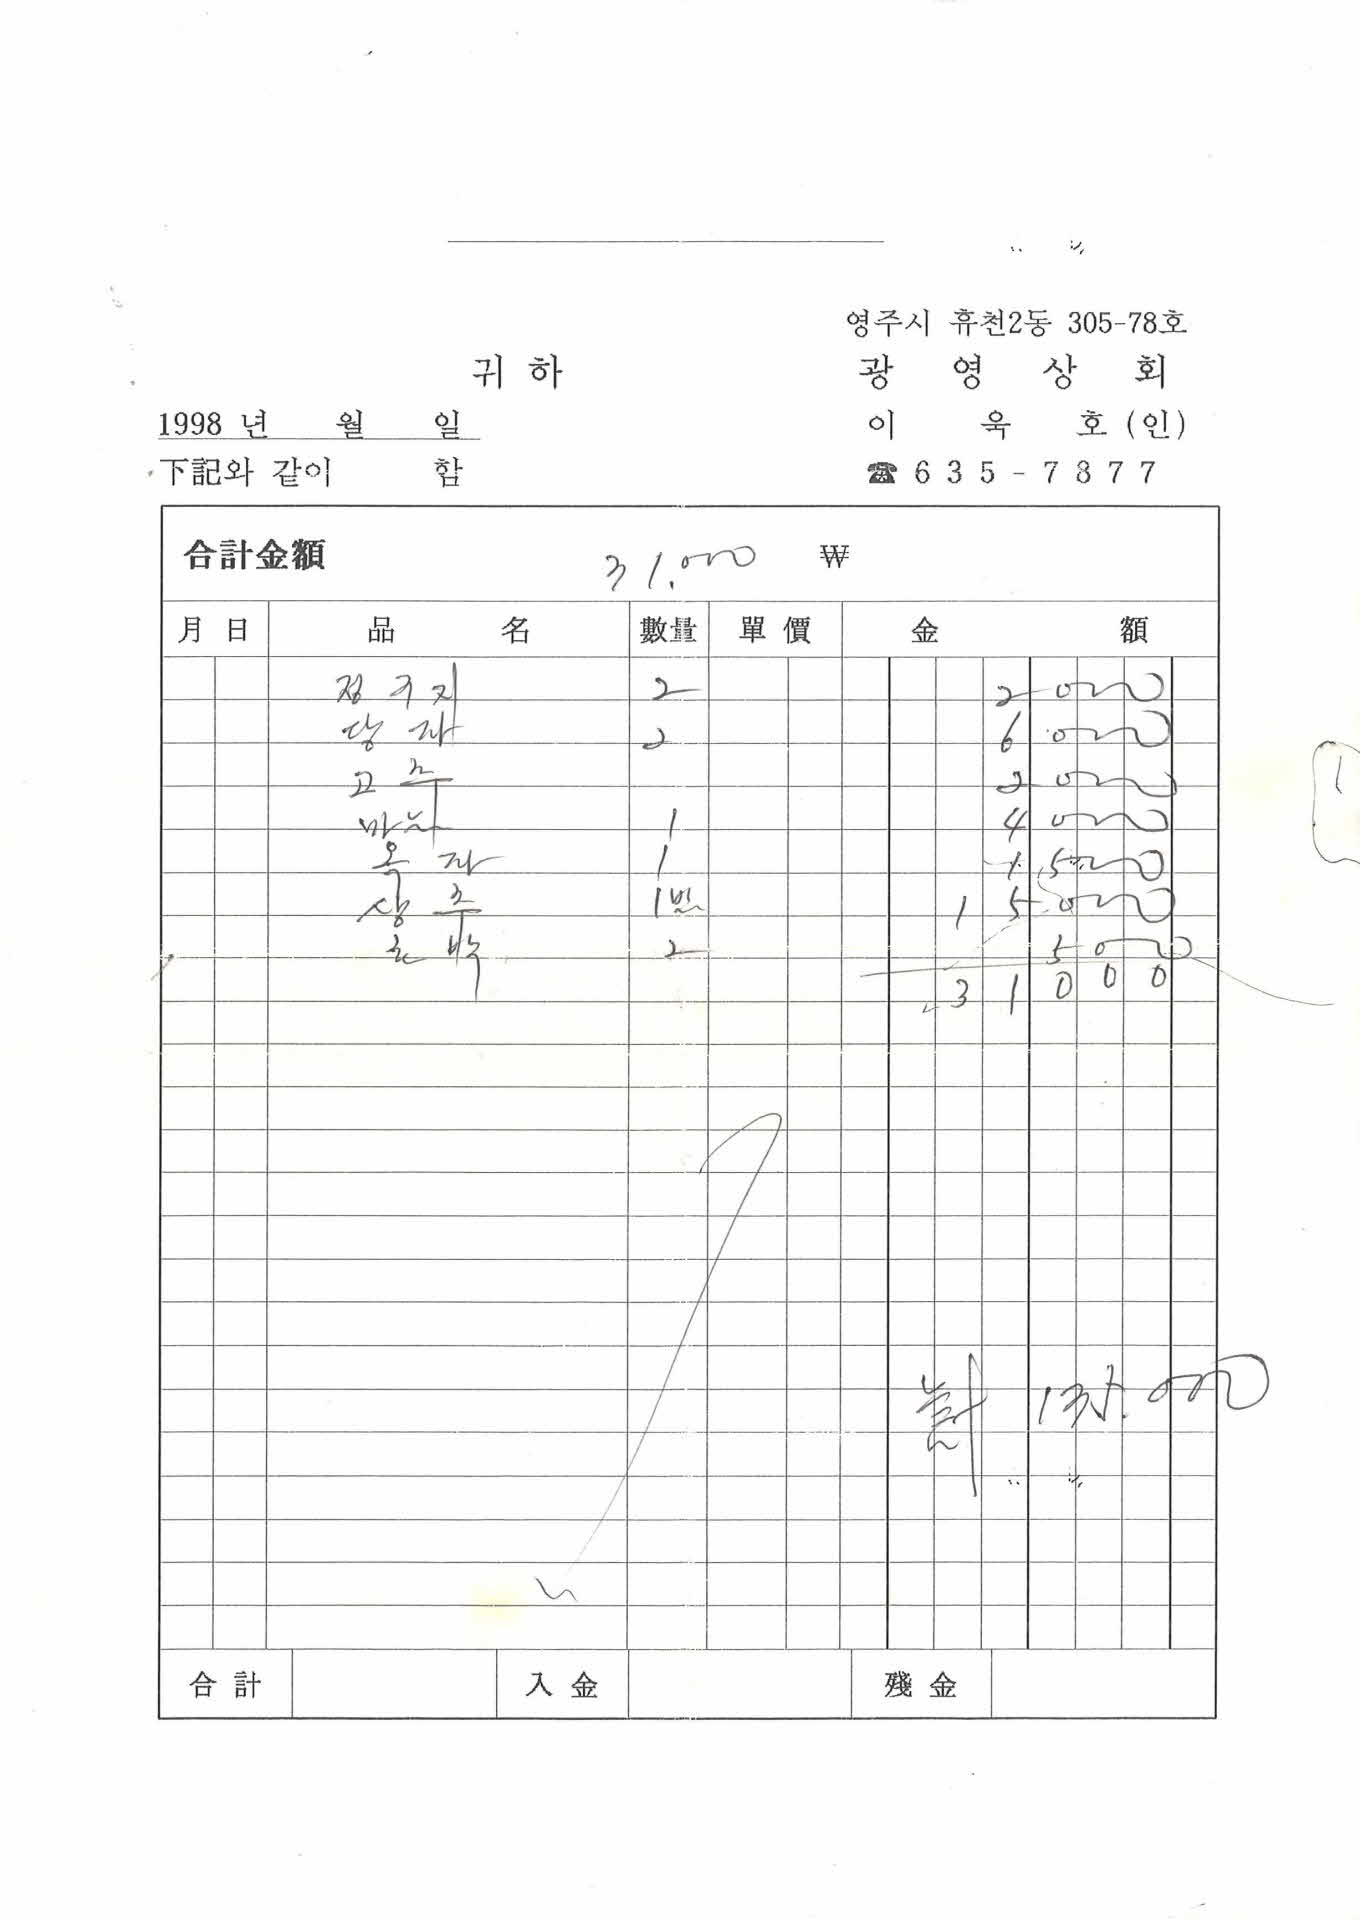 영주시 휴천2동 305-78호
귀 하 광 영 상 회
1998 년 월 일 이 욱 호 (인)
下記와 같이 함 ☎ 6 3 5 - 7 8 7 7
合計金額 31.000 ₩
月 日 品 名 數量 單價 金 額
정구지 2 2000
당자 2 6000
고추 2000
1 4000
옥자 1 1500
상추 1 15000
호박 2 500
31000
計 135.000
合 計 入 金 殘 金